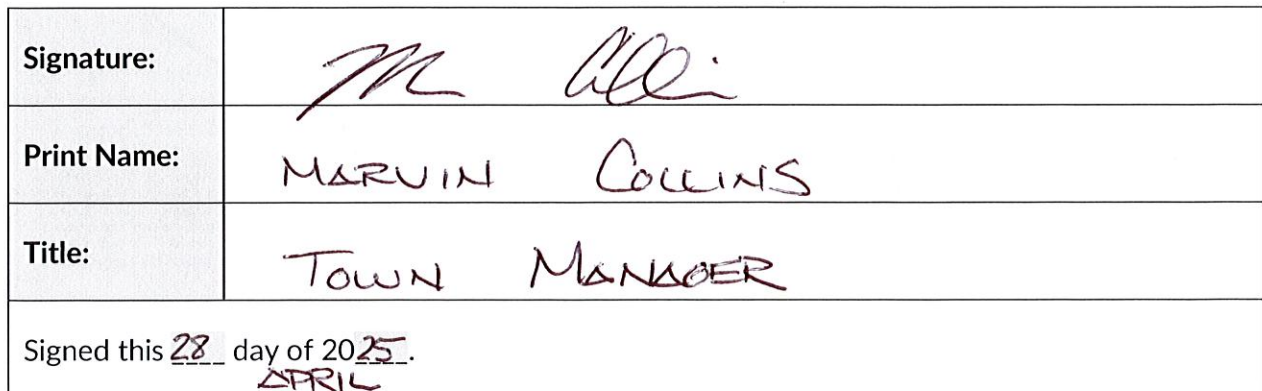 Signature: M Colli
Print Name: MARVIN COLLINS
Title: TOWN MANAGER
Signed this 28 day of 2025.
APRIL